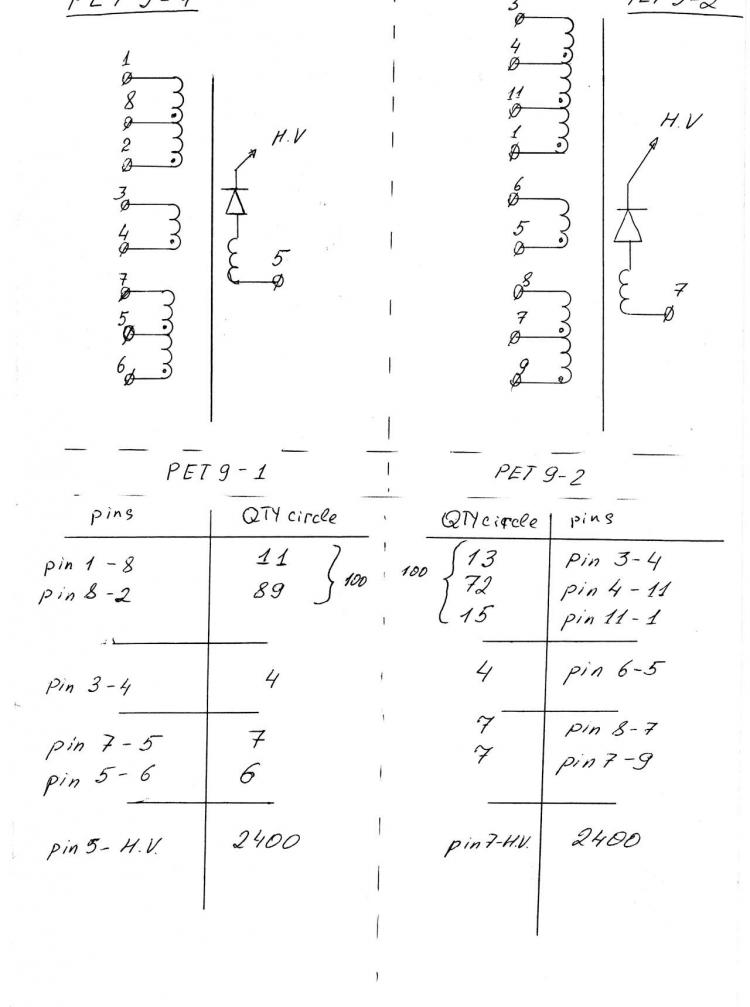 PET 9-1
1
8
2
3
4
7
5
6
H.V
5
PET 9-2
3
4
11
1
6
5
8
7
9
H.V
7
PET 9-1
pins QTY circle
pin 1-8 11
pin 8-2 89
} 100
pin 3-4 4
pin 7-5 7
pin 5-6 6
pin 5-H.V. 2400
PET 9-2
QTY circle pins
100 {
13 pin 3-4
72 pin 4-11
15 pin 11-1
4 pin 6-5
7 pin 8-7
7 pin 7-9
pin 7-H.V. 2400